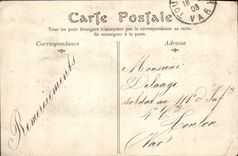 Carte Postale
Tous les pays étrangers n'acceptent pas la correspondance au recto.
Se renseigner à la poste.
Correspondance
Adresse
Remerciements
Monsieur
Delaage
soldat au 111e d'Inf
Toulon
Var
VAR
08